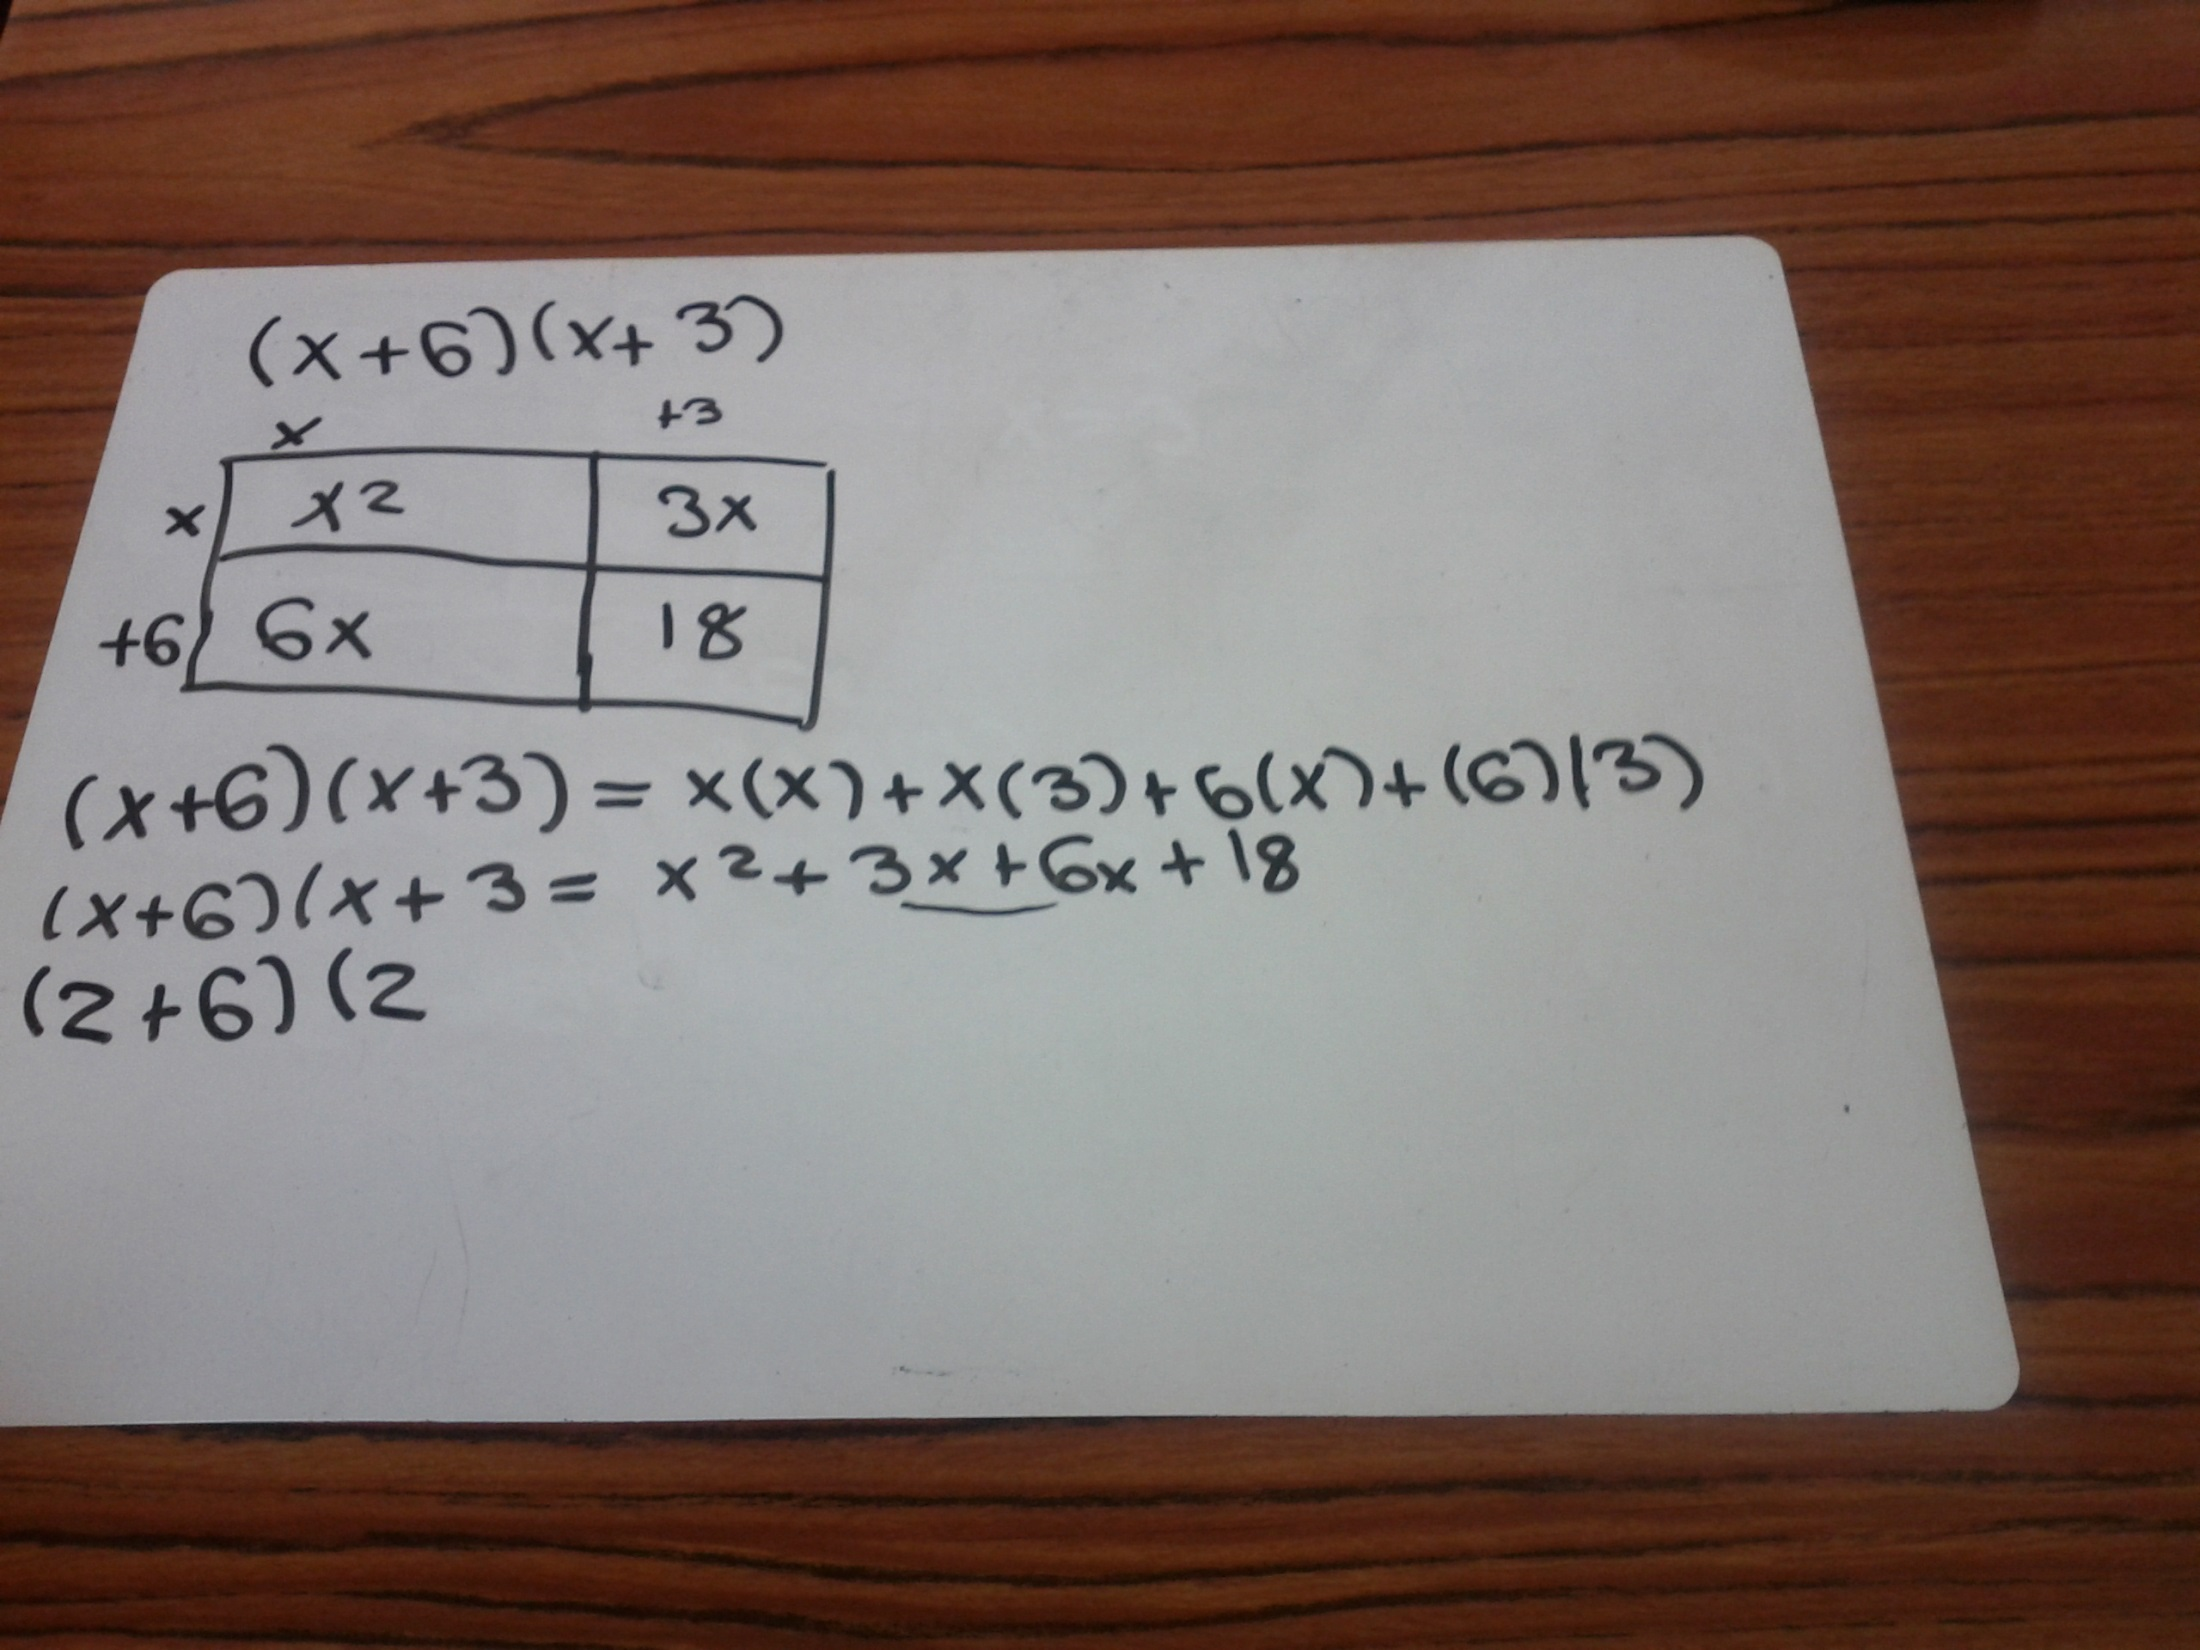 (x+6)(x+3)
x +3
x x2 3x
+6 6x 18
(x+6)(x+3)= x(x)+x(3)+6(x)+(6)(3)
(x+6)(x+3= x2+3x+6x+18
(2+6)(2